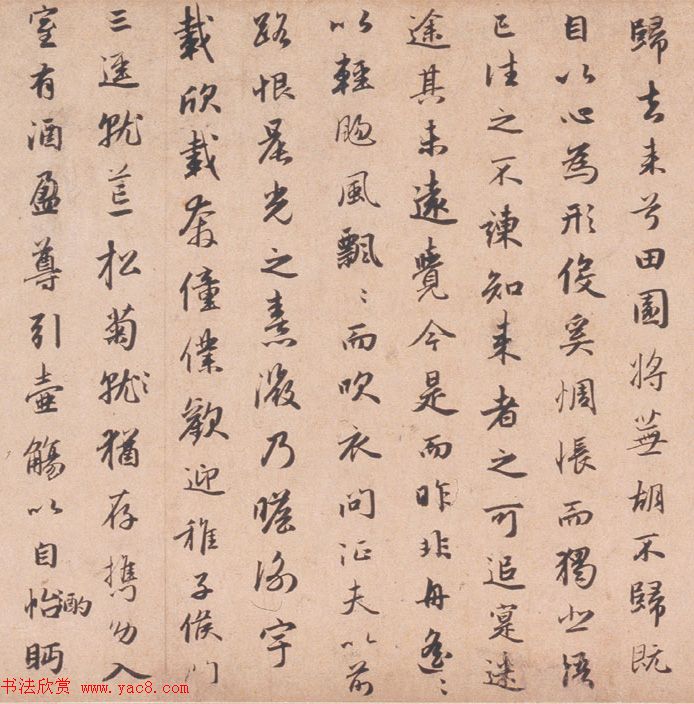 歸去来兮田園將蕪胡不歸既
自以心為形役奚惆悵而獨悲悟
已往之不諫知来者之可追寔迷
途其未遠覺今是而昨非舟遙〻
以輕颺風飄〻而吹衣問征夫以前
路恨晨光之熹微乃瞻衡宇
載欣載奔僮僕歡迎稚子候門
三逕就荒松菊就猶存携幼入
室有酒盈尊引壺觴以自怡酌眄
书法欣赏 www.yac8.com